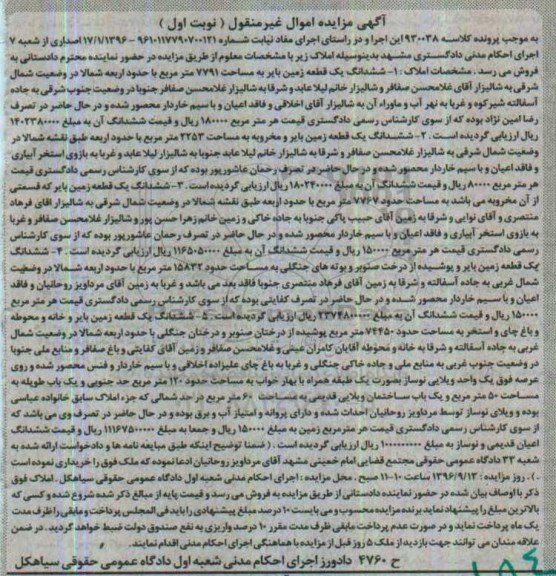 آگهی مزایده اموال غیرمنقول ( نوبت اول )
به موجب پرونده کلاسه ۹۳۰۰۳۸ این اجرا و در راستای اجرای مفاد نیابت شماره ۹۶۱۰۱۱۷۷۹۰۷۰۰۱۳۱ - ۱۷/۱/۱۳۹۶ اصداری از شعبه ۷
اجرای احکام مدنی دادگستری مشهد بدینوسیله املاک زیر با مشخصات معلوم از طریق مزایده در حضور نماینده محترم دادستانی به
فروش می رسد . مشخصات املاک : ۱- ششدانگ یک قطعه زمین بایر به مساحت ۷۷۹۱ متر مربع با حدود اربعه شمالا در وضعیت شمال
شرقی به شالیزار آقای غلامحسن صفافر و شالیزار خانم لیلا عابد و شرقا به شالیزار غلامحسن صفافر جنوبا در وضعیت جنوب شرقی به جاده
آسفالته شیرکوه و غربا به نهر آب و ماوراء آن به شالیزار آقای اخلاقی و فاقد اعیان و با سیم خاردار محصور شده و در حال حاضر در تصرف
رضا امین نژاد بوده که از سوی کارشناس رسمی دادگستری قیمت هر متر مربع ۱۸۰۰۰۰ ریال و قیمت ششدانگ آن به مبلغ ۱۴۰۲۳۸۰۰۰۰
ریال ارزیابی گردیده است . ۲- ششدانگ یک قطعه زمین بایر و مخروبه به مساحت ۲۲۵۳ متر مربع با حدود اربعه طبق نقشه شمالا در
وضعیت شمال شرقی به شالیزار غلامحسن صفافر و شرقا به شالیزار خانم لیلا عابد جنوبا به شالیزار لیلا عابد و غربا به بازوی استخر آبیاری
و فاقد اعیان و با سیم خاردار محصور شده و در حال حاضر در تصرف رحمان عاشورپور بوده که از سوی کارشناس رسمی دادگستری قیمت
هر متر مربع ۸۰۰۰۰ ریال و قیمت ششدانگ آن به مبلغ ۱۸۰۲۴۰۰۰۰ ریال ارزیابی گردیده است . ۳- ششدانگ یک قطعه زمین بایر که قسمتی
از آن مخروبه می باشد به مساحت حدود ۷۷۶۷ متر مربع با حدود اربعه طبق نقشه شمالا در وضعیت شمال شرقی به شالیزار اقای فرهاد
منتصری و آقای نوایی و شرقا به زمین آقای حبیب پاکی جنوبا به جاده خاکی و زمین خانم زهرا حسن پور و شالیزار غلامحسن صفافر و غربا
به بازوی استخر آبیاری و فاقد اعیان و با سیم خاردار محصور شده و در حال حاضر در تصرف رحمان عاشورپور بوده که از سوی کارشناس
رسمی دادگستری قیمت هر متر مربع ۱۵۰۰۰۰ ریال و قیمت ششدانگ آن به مبلغ ۱۱۶۵۰۵۰۰۰۰ ریال ارزیابی گردیده است . ۴- ششدانگ
یک قطعه زمین بایر و پوشیده از درخت صنوبر و بوته های جنگلی به مساحت حدود ۱۵۸۳۲ متر مربع با حدود اربعه شمالا در وضعیت
شمال غربی به جاده آسفالته و شرقا به زمین آقای فرهاد منتصری جنوبا فاقد بعد می باشد و غربا به زمین آقای مرداویز روحانیان و فاقد
اعیان و با سیم خاردار محصور شده و در حال حاضر در تصرف کفایتی بوده که از سوی کارشناس رسمی دادگستری قیمت هر متر مربع
۱۵۰۰۰۰ ریال و قیمت ششدانگ آن به مبلغ ۲۳۷۴۸۰۰۰۰۰ ریال ارزیابی گردیده است . ۵- ششدانگ یک قطعه زمین بایر و خانه و محوطه
و باغ چای و استخر به مساحت حدود ۷۴۴۵۰ متر مربع پوشیده از درختان صنوبر و درختان جنگلی با حدود اربعه شمالا در وضعیت شمال
غربی به جاده آسفالته و شرقا به خانه و محوطه آقایان کامران عینی و غلامحسن صفافر و زمین آقای کفایتی و باغ صفافر و منابع ملی جنوبا
در وضعیت جنوب غربی به منابع ملی و جاده خاکی جنگلی و غربا به باغ چای علیزاده اخلاقی و با سیم خاردار و فنس محصور شده و روی
عرصه فوق یک واحد ویلایی نوساز بصورت یک طبقه همراه با بهار خواب به مساحت حدود ۱۲۰ متر مربع حد جنوبی و یک باب طویله به
مساحت ۵۰ متر مربع و یک باب ساختمان ویلایی قدیمی به مساحت ۶۰ متر مربع در حد شمالی که جزء املاک سابق خانواده عباسی
بوده و ویلای نوساز توسط مرداویز روحانیان احداث شده و دارای پروانه و امتیاز آب و برق بوده و در حال حاضر در تصرف وی می باشد که
از سوی کارشناس رسمی دادگستری قیمت هر متر مربع زمین به مبلغ ۱۵۰۰۰۰ ریال و جمعا به مبلغ ۱۱۱۶۷۵۰۰۰۰۰ ریال و قیمت ششدانگ
اعیان قدیمی و نوساز به مبلغ ۱۰۰۰۰۰۰۰۰۰ ریال ارزیابی گردیده است . ( ضمنا توضیح اینکه طبق مبایعه نامه ها و دادخواست ارائه شده به
شعبه ۳۳ دادگاه عمومی حقوقی مجتمع قضایی امام خمینی مشهد آقای مرداویز روحانیان ادعا نموده که ملک فوق را خریداری نموده است
.) . روز مزایده : ۱۳۹۶/۹/۱۳ ساعت ۱۰-۱۱ صبح . محل مزایده : اجرای احکام مدنی شعبه اول دادگاه عمومی حقوقی سیاهکل . املاک فوق
ذکر با اوصاف بیان شده در حضور نماینده دادستانی از طریق مزایده به فروش می رسد و قیمت پایه از مبالغ ذکر شده شروع شده و کسی که
بالاترین مبلغ را پیشنهاد نماید برنده مزایده محسوب و می بایست ۱۰ درصد مبلغ پیشنهادی را باید فی المجلس پرداخت و مابقی را ظرف مدت
یک ماه پرداخت نماید و در صورت عدم پرداخت مابقی ظرف مدت مقرر ۱۰ درصد واریزی به نفع صندوق دولت ضبط خواهد گردید . در ضمن
علاقه مندان می توانند جهت بازدید از ملک ۵ روز قبل از مزایده با هماهنگی اجرای احکام مدنی اقدام نمایند.
ح ۴۷۶۰ دادورز اجرای احکام مدنی شعبه اول دادگاه عمومی حقوقی سیاهکل